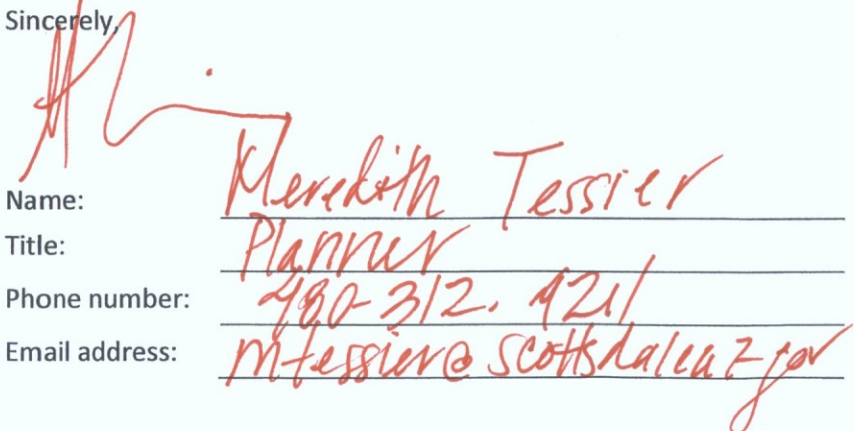 Sincerely,
Name: Meredith Tessier
Title: Planner
Phone number: 480-312. 4211
Email address: mtessier@scottsdaleaz.gov